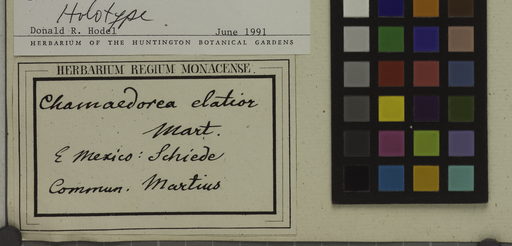 Holotype
Donald R. Hodel June 1991
HERBARIUM OF THE HUNTINGTON BOTANICAL GARDENS
HERBARIUM REGIUM MONACENSE.
Chamaedorea elatior
Mart.
E Mexico: Schiede
Commun. Martius